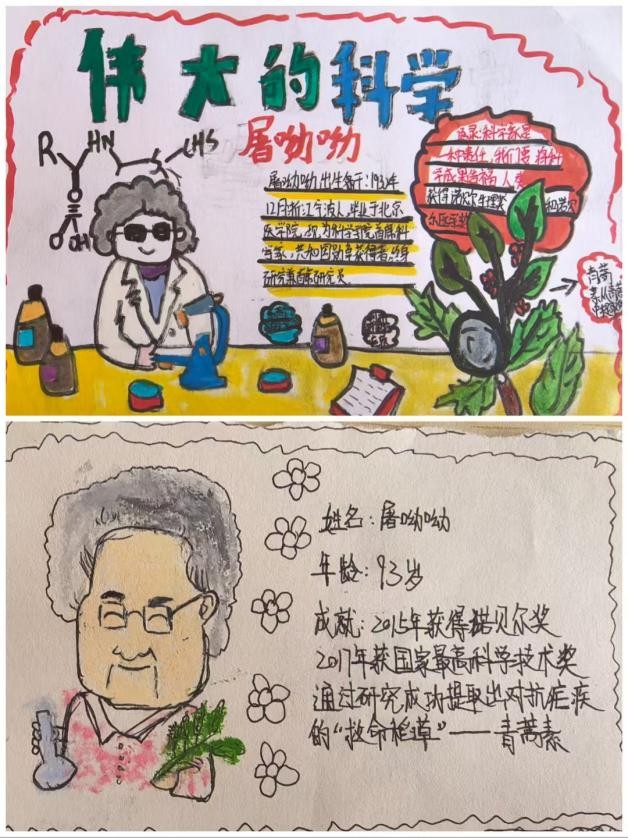 伟大的科学
屠呦呦
R
HN
CHS
O
OH
屠呦呦,出生于:1930年
12月,浙江宁波人,毕业于北京
医学院,
学家,共和国勋章获得者,终身
研究员
科学家是
一种责任,我们要将科
学成果告福人类
获得诺贝尔生理奖
和诺贝
尔医学奖
青蒿
素从青
姓名:屠呦呦
年龄:93岁
成就:2015年获得诺贝尔奖
2017年获国家最高科学技术奖
通过研究成功提取出对抗疟疾
的“救命稻草”——青蒿素